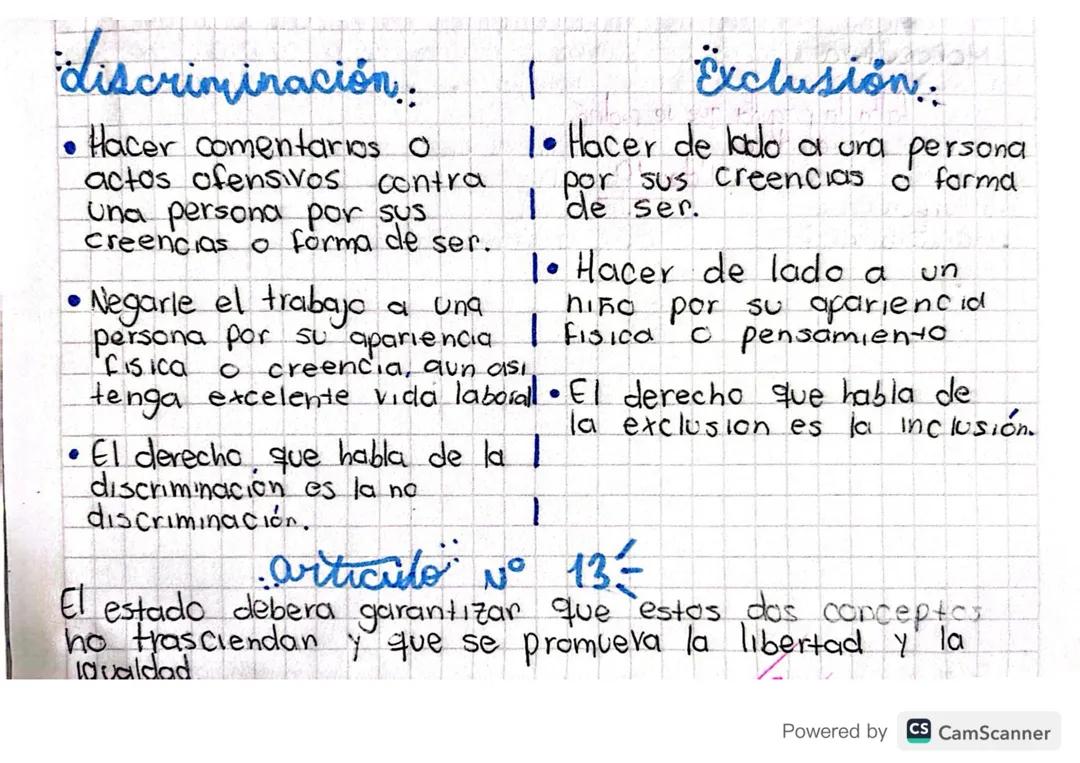 discriminación
• Hacer comentarios o
actos ofensivos contra
una persona por sus
creencias o forma de ser.
• Negarle el trabajo a una
persona por su apariencia
fisica o creencia, aun asi
tenga excelente vida laboral
• El derecho que habla de la
discriminación es la no
discriminación.
Exclusión
• Hacer de lado a una persona
por sus creencias o forma
de ser.
• Hacer de lado a un
niño por su apariencia
fisica o pensamiento
• El derecho que habla de
la exclusion es la inclusión.
articulo N° 13
El estado debera garantizar que estos dos conceptos
no trasciendan y que se promueva la libertad y la
igualdad
Powered by CS CamScanner